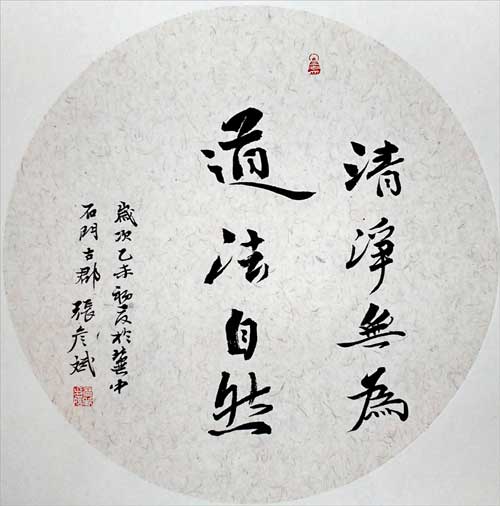 清淨無為
道法自然
歲次乙未初夏於冀中
石門古郡 張彦斌